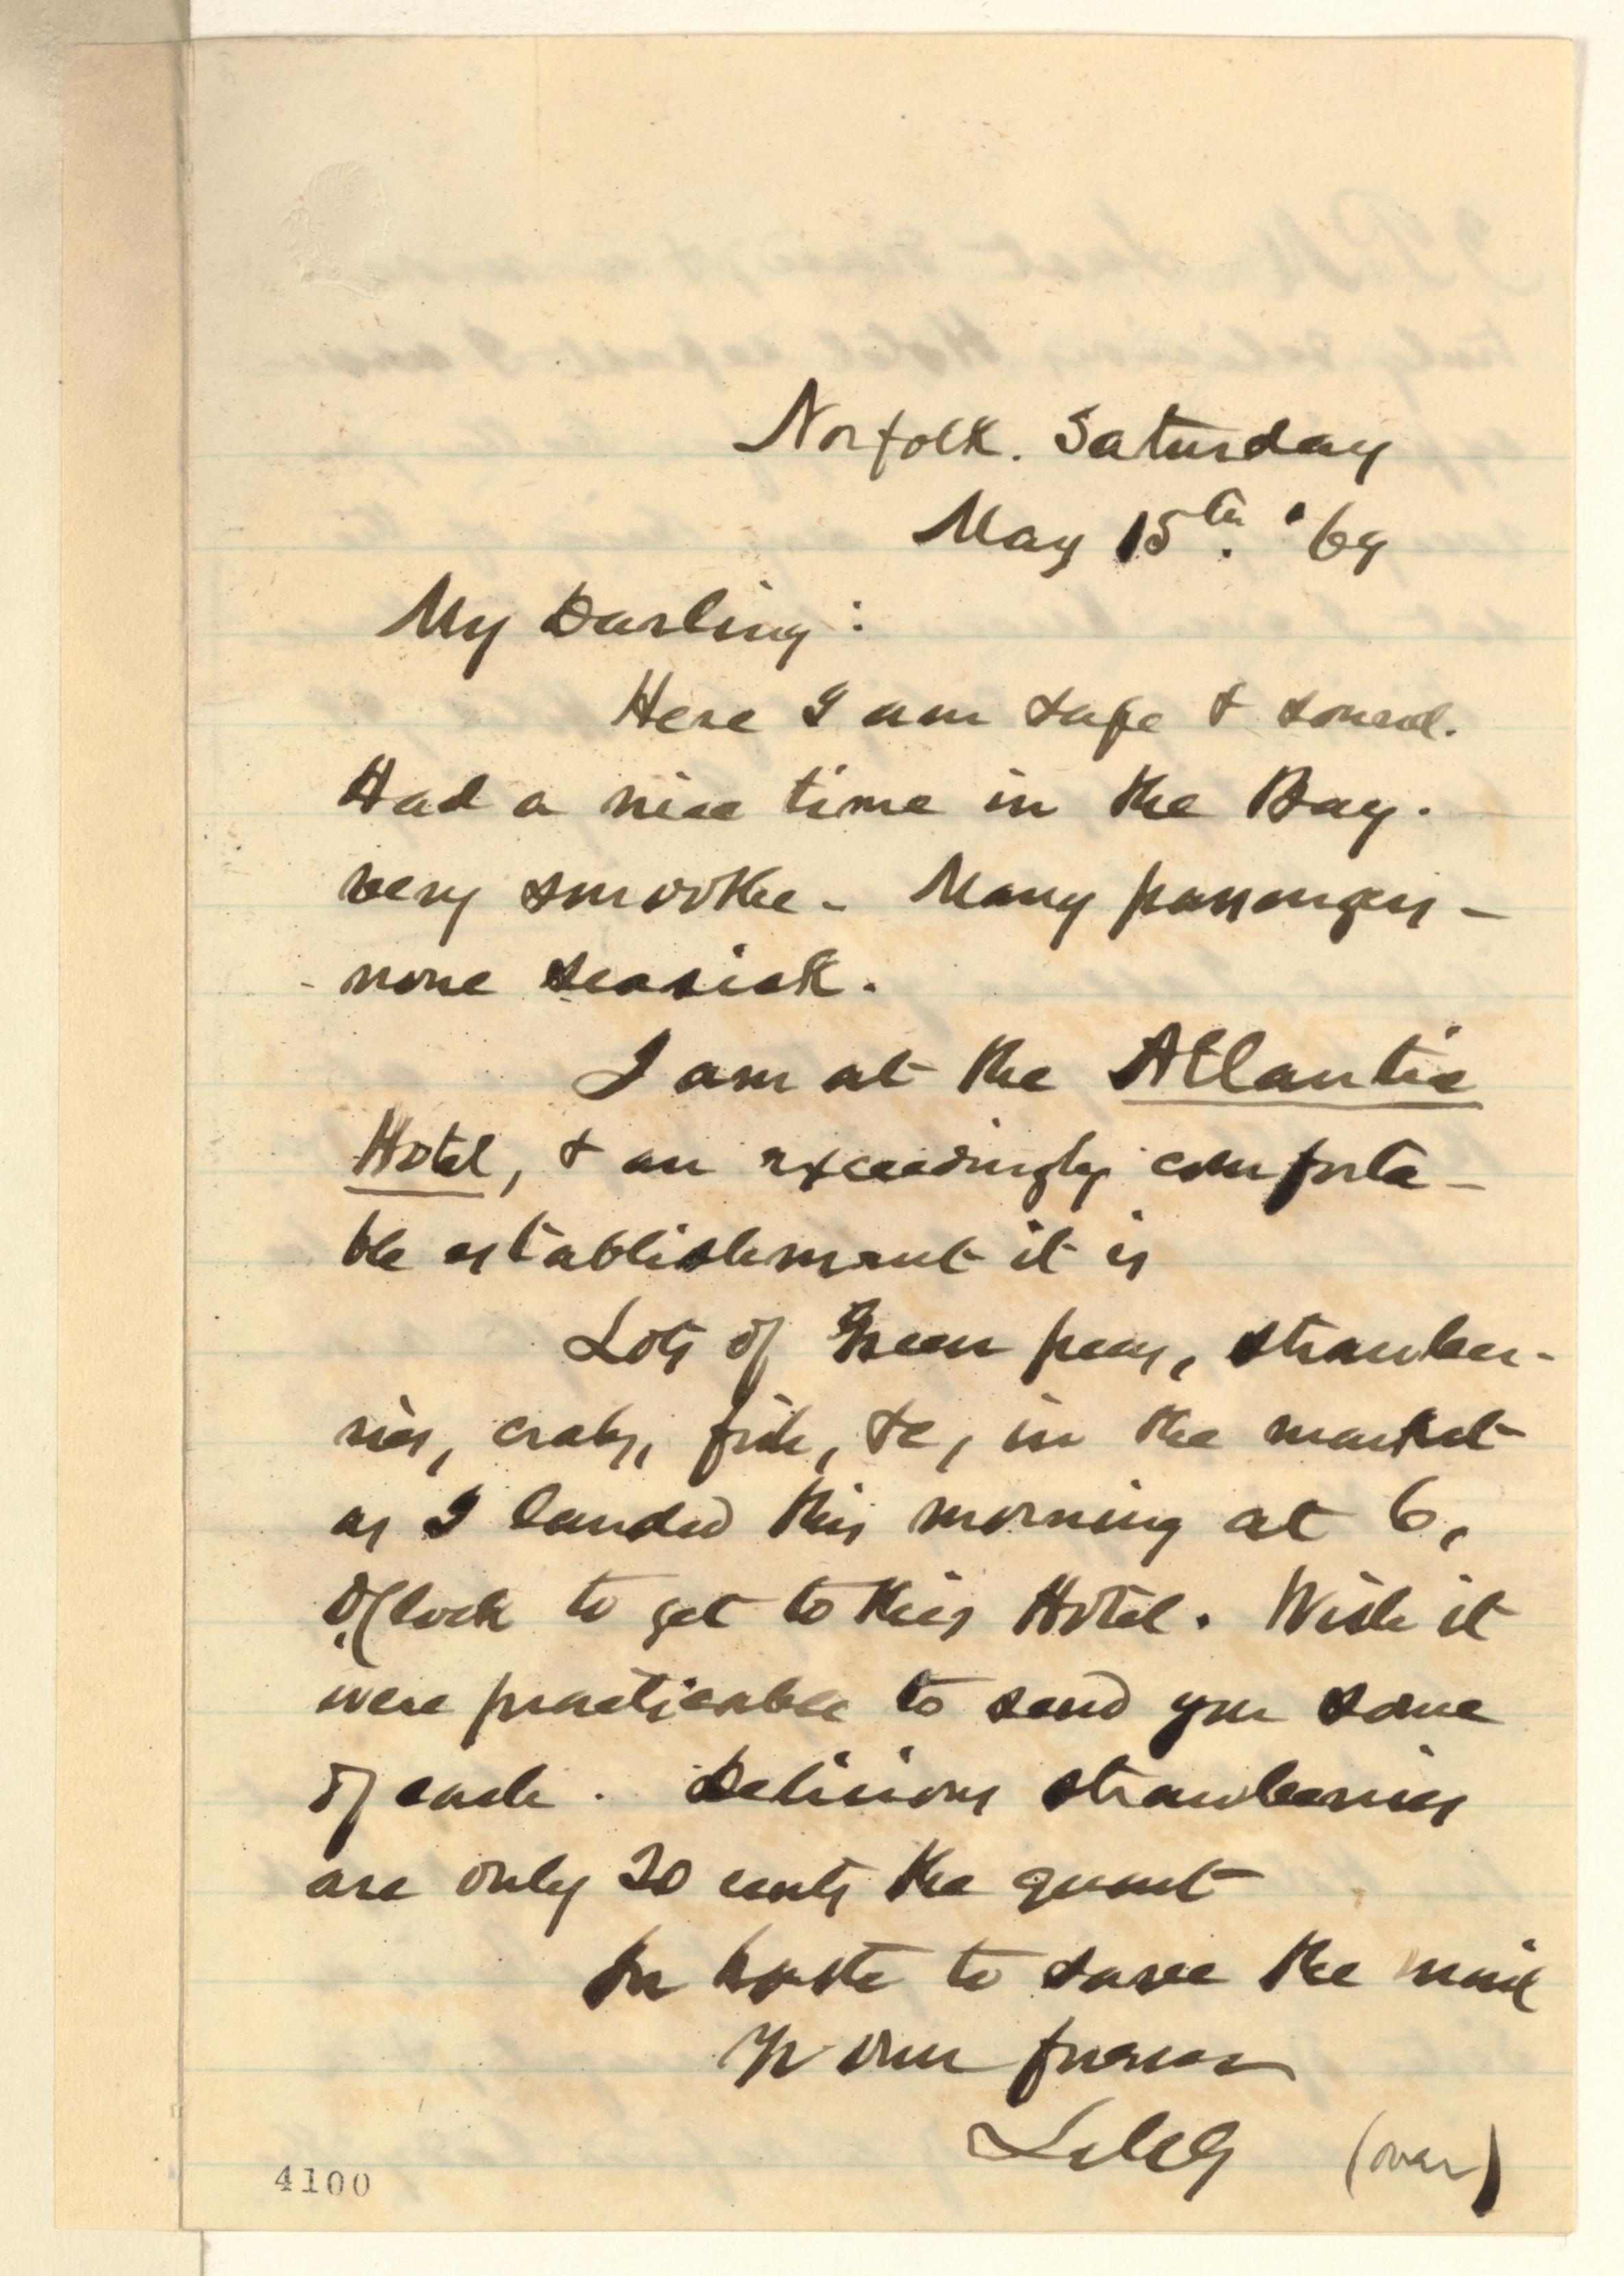 Norfolk. Saturday
May 15th. '69
My Darling:
Here I am safe & sound.
Had a nice time in the Bay.
very smoothe - Many passengers -
none seasick.
I am at the Atlantic
Hotel, & an exceedingly comforta-
ble establishment it is
Lots of Green peas, strawber-
ries, crabs, fish, &c, in the market
as I landed this morning at 6,
O'Clock to get to this Hotel. Wish it
were practicable to send you some
of each. Delicious strawberries
are only 20 cents the quart
In haste to save the mail
Yr own forever
(over)
4100